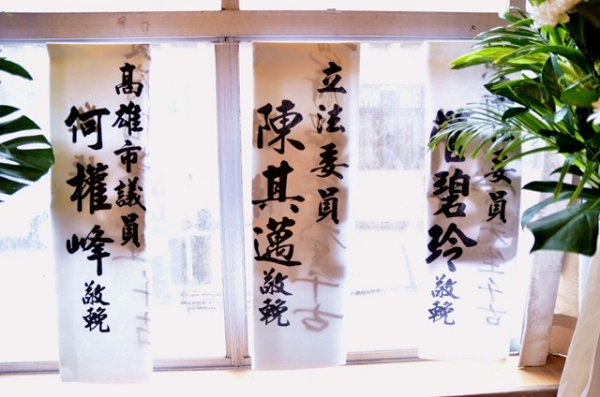 委員
管碧玲敬輓
立法委員
陳其邁敬輓
高雄市議員
何權峰敬輓